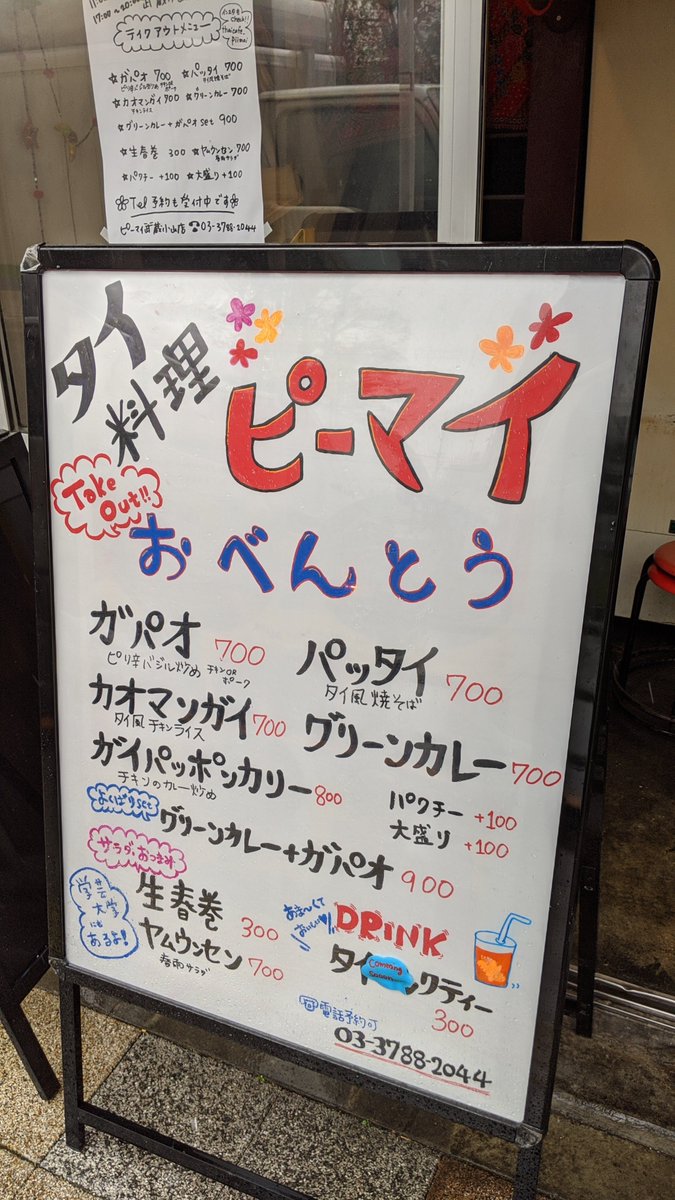 17:00～20:00
テイクアウトメニュー
check!!
thaicafe.
piimai
☆ガパオ 700 ☆パッタイ 700
ピリ辛バジル炒め チキンor ポーク タイ風焼そば
☆カオマンガイ 700 ☆グリーンカレー 700
チキンライス
☆グリーンカレー+ガパオ set 900
☆生春巻 300 ☆ヤムウンセン 700
春雨サラダ
☆パクチー +100 ☆大盛り +100
Tel 予約も受付中です
ピーマイ武蔵小山店 ☎03-3788-2044
タイ
料理
ピーマイ
Take
Out!!
おべんとう
ガパオ 700
ピリ辛バジル炒め チキンOR
ポーク
パッタイ 700
タイ風焼そば
カオマンガイ 700
タイ風チキンライス
グリーンカレー 700
ガイパッポンカリー 800
チキンのカレー炒め
パクチー +100
大盛り +100
よくばりset
グリーンカレー+ガパオ 900
サラダ・おつまみ
学芸
大学
にも
あるよ!
生春巻 300
ヤムウンセン 700
春雨サラダ
あま〜くて
おいしい
DRINK
タイ ックティー
Comeing
soon
300
電話予約可
03-3788-2044